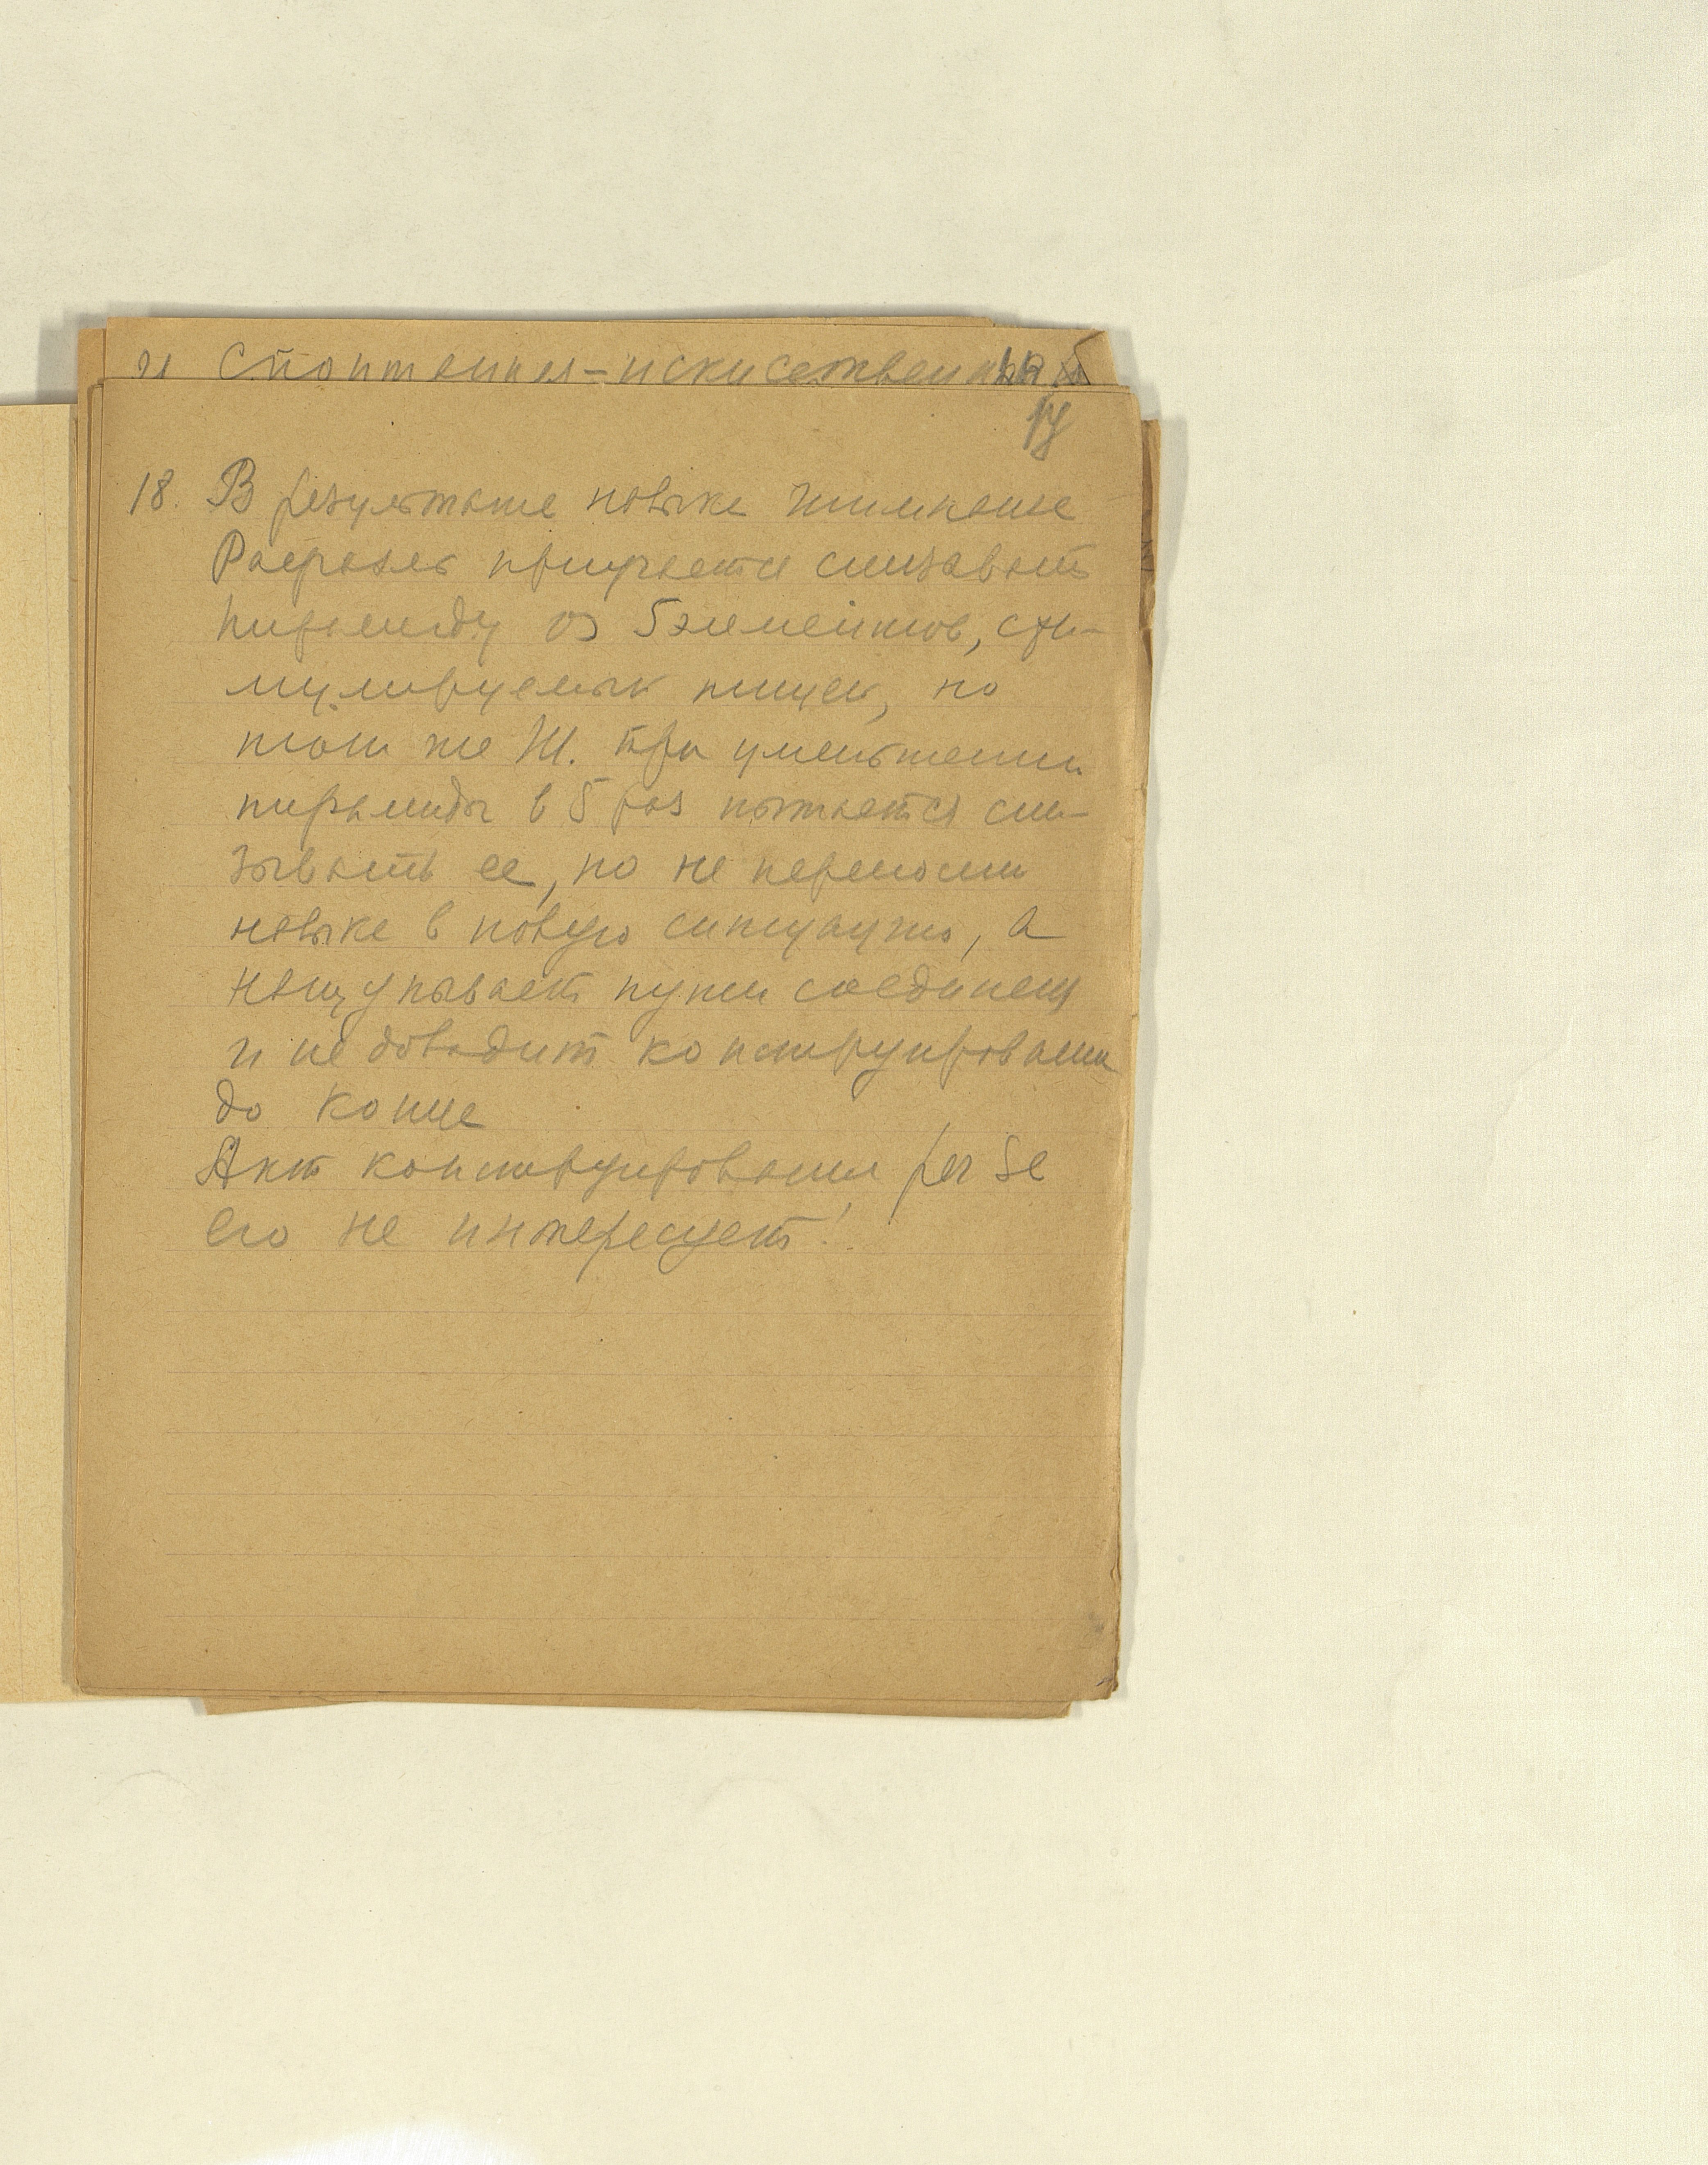 и Спонтанная-искусственная
17
18. В результате навыка шимпанзе
Рафаэль приучается снизывать
пирамиду из 5 элементов, сти-
мулируемый пищей, но
тот же Ш. при уменьшении
пирамиды в 5 раз пытается сни-
зывать ее, но не переносит
навыка в новую ситуацию, а
нащупывает пути соединения
и не доводит конструирования
до конца
Акт конструирования per se
его не интересует!